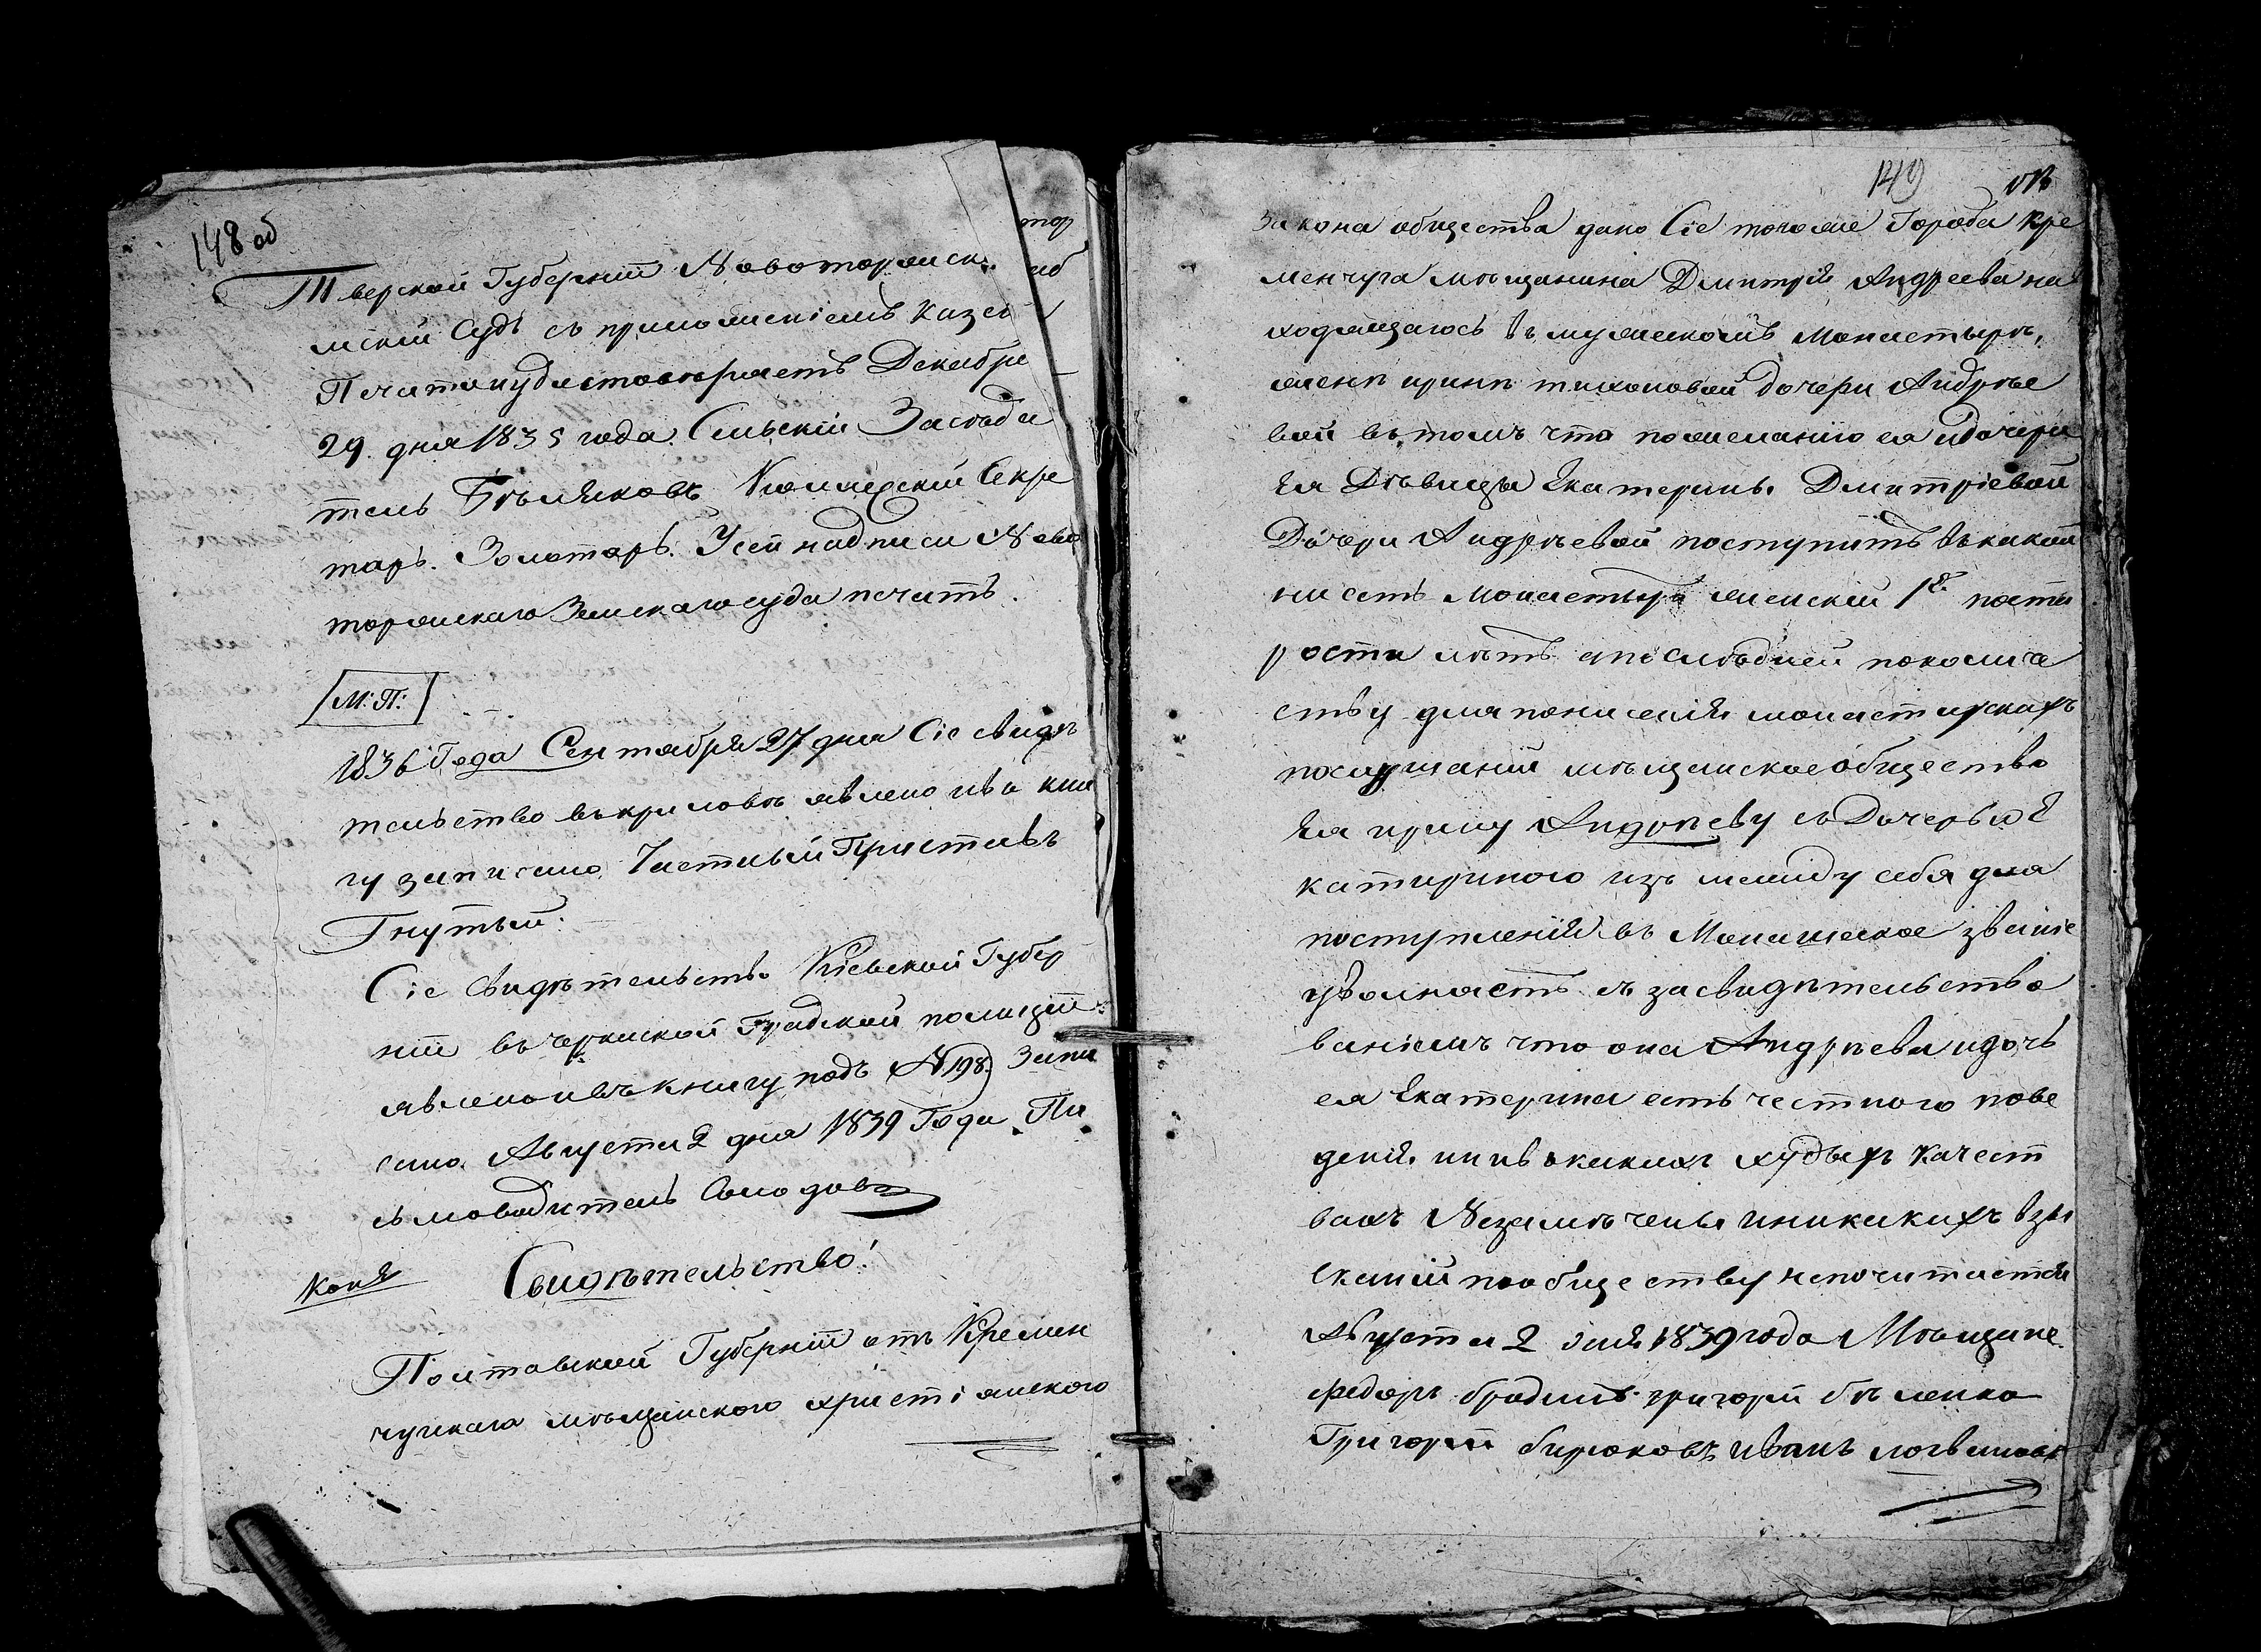 148 об
Тверской Губернiи Новоторжск:
мскiй Судъ съ приложенiемъ казен
Печати удостовѣряетъ Декабря
29. дня 1835 года. Сельскiй Засѣда
тель Бѣляковъ Коллежскiй Секре
тарь. Золотарь. У сей надписи Ново
торжскаго Земскаго суда печать.
М: П:
1836 Года Сентября 27 дня Сiе свидѣ
тельство въ крыловѣ явлено и въ кни
гу записано, Частный Приставъ
Гнутый:
Сiе Свидѣтельство Кiевской Губер
нiи въ черкаской Градской полицiи
явлено и въ книгу подъ № 198) Запи
сано. Августа 2 дня 1839 Года. Пи
сьмоводитель Солодовъ
Копiя Свидѣтельство!
Полтавской Губернiи отъ Кремен
чугскаго мѣщанского християнского
149
закона общества дано Сiе того же Города Кре
менчуга мѣщанина Дмитрiя Андреева на
ходящагось въ мужескомъ Монастырѣ,
женѣ иринѣ тихоновой дочери Андрѣе
вой въ томъ что по желанiю ея и дочери
Ея Дѣвицы Екатерины Дмитрiевой
Дочери Андрѣевой поступить въ какой
ни есть Монастырь женскiй 1я по ста
рости лѣтъ а послѣдней по количе
ству для понисенiя монастырскихъ
послушанiй мѣщанское общество
Ея ирину Андрѣеву съ Дочерью Е
катириною изъ между себя для
поступленiя въ Монашеское званiе
увольняетъ съ засвидѣтельство
ванiемъ что она Андрѣева и дочь
ея Екатерина есть честного пове
денiя. ни въ какихъ худыхъ качест
вахъ Незамѣчены и никакихъ взы
сканiй по обществу непочитается
Августа 2 дня 1839 года Мѣщане
федоръ бродинъ григорiй бѣленко
Григорiй бирюковъ, иванъ логвиновъ